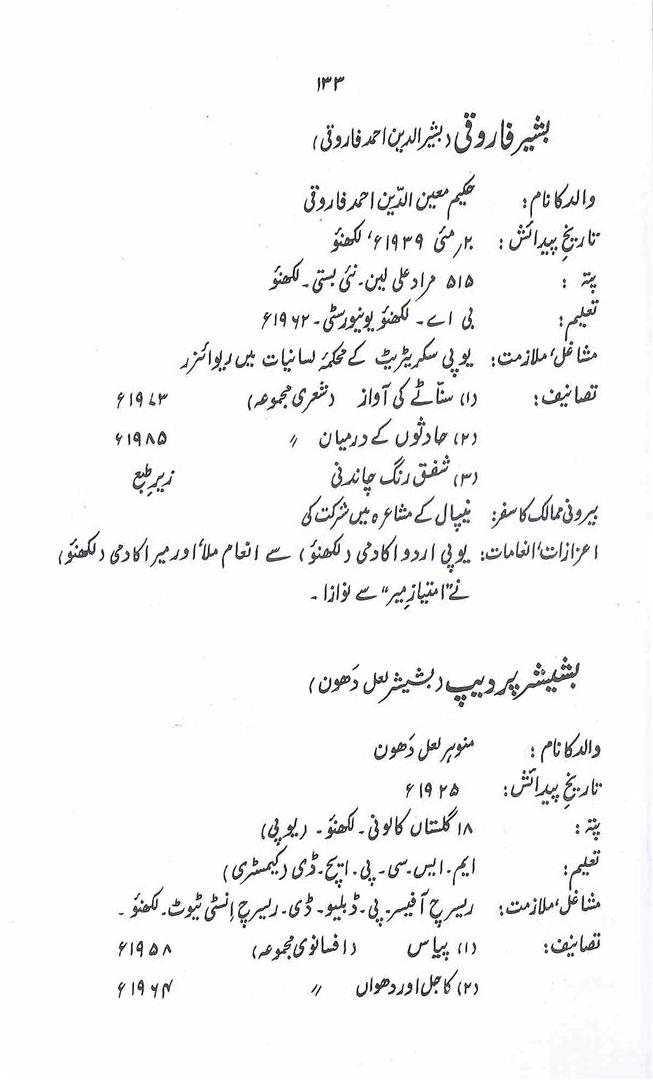 ۱۳۳
بشیر فاروقی (بشیر الدین احمد فاروقی)
والد کا نام: حکیم معین الدّین احمد فاروقی
تاریخِ پیدائش: ۲ر مئی ۱۹۳۹ء، لکھنؤ
پتہ: ۵۱۵ مراد علی لین۔ نئی بستی۔ لکھنؤ
تعلیم: بی اے۔ لکھنؤ یونیورسٹی۔ ۱۹۶۲ء
مشاغل، ملازمت: یوپی سکریٹریٹ کے محکمۂ لسانیات میں ریوائزر
تصانیف: (۱) سنّاٹے کی آواز (شعری مجموعہ) ۱۹۷۳ء
(۲) حادثوں کے درمیان // ۱۹۸۵ء
(۳) شفق رنگ چاندنی زیرِ طبع
بیرونی ممالک کا سفر: نیپال کے مشاعرہ میں شرکت کی
اعزازات، انعامات: یوپی اردو اکادمی (لکھنؤ) سے انعام ملا، اور میر اکادمی (لکھنؤ)
نے "امتیازِ میر" سے نوازا۔
بشیشر پردیپ (بشیشر لعل دَھون)
والد کا نام: منوہر لعل دَھون
تاریخِ پیدائش: ۱۹۲۵ء
پتہ: ۱۸ گلستاں کالونی۔ لکھنؤ۔ (یوپی)
تعلیم: ایم۔ ایس۔ سی۔ پی۔ ایچ۔ ڈی (کیمسٹری)
مشاغل، ملازمت: ریسرچ آفیسر۔ پی۔ ڈبلیو۔ ڈی۔ ریسرچ انسٹی ٹیوٹ۔ لکھنؤ۔
تصانیف: (۱) پیاس (افسانوی مجموعہ) ۱۹۵۸ء
(۲) کاجل اور دھواں // ۱۹۶۴ء